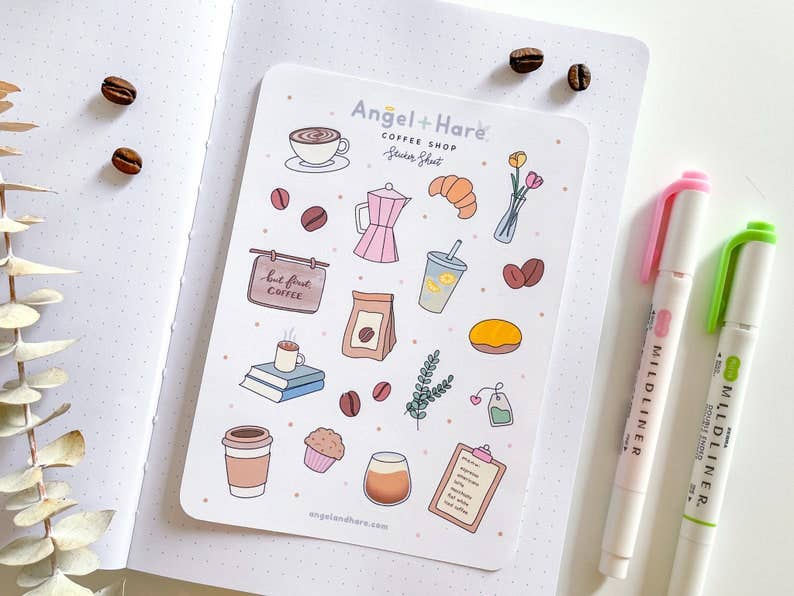 Angel + Hare
COFFEE SHOP
Sticker Sheet
but first,
COFFEE
menu
espresso
americano
latte
macchiato
flat white
iced coffee
angelandhare.com
MILDLINER
MILDLINER
DOUBLE ENDED
ZEBRA